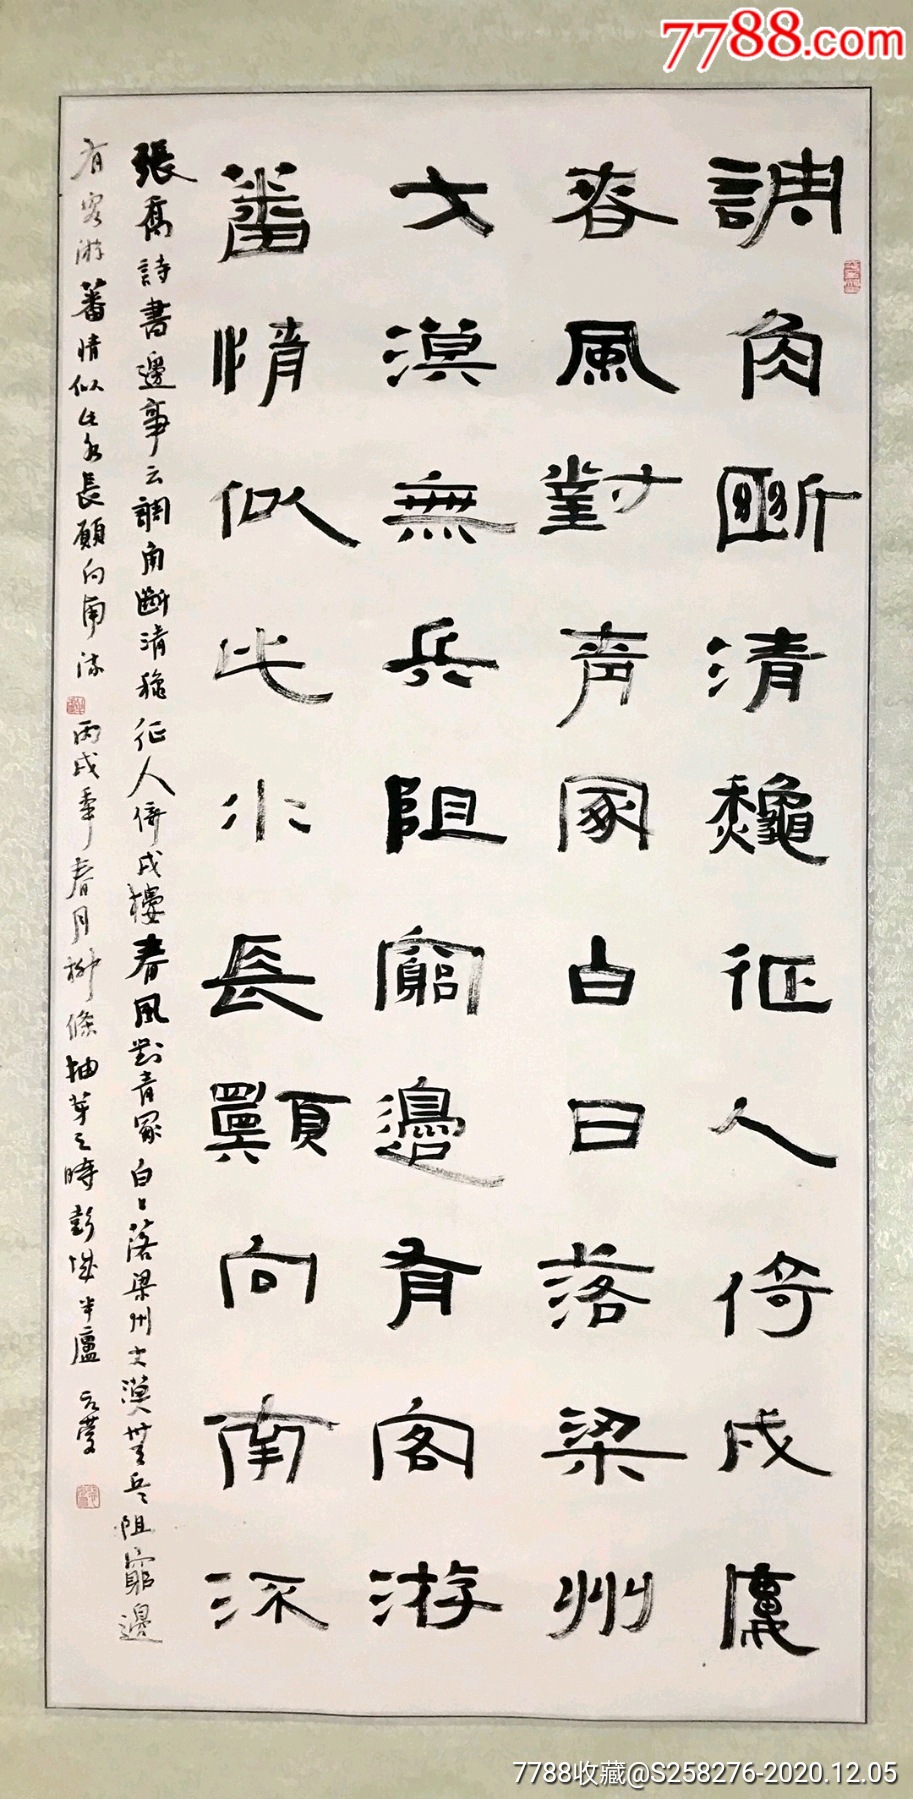 7788.com
調角斷清龝征人倚戍廔
春風對青冢白日落梁州
大漠無兵阻窮邊有客游
番情似此水長願向南流
張喬詩書邊事云調角斷清秋征人倚戍樓春風對青冢白日落梁州大漠無兵阻窮邊
有客游蕃情似此水長願向南流丙戌年春月柳條抽芽之時彭城半廬
7788收藏@S258276-2020.12.05